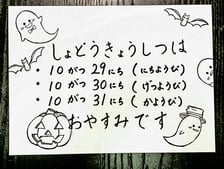 しょどうきょうしつは
・10がつ29にち(にちようび)
・10がつ30にち(げつようび)
・10がつ31にち(かようび)
おやすみです